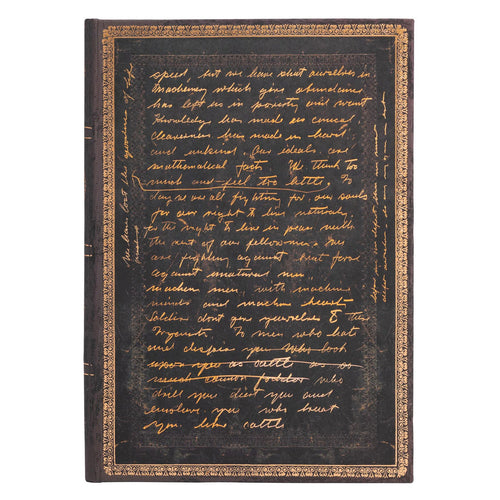 speed, but we have shut ourselves in
Machinery which gives abundance
has left us in poverty and want
Knowledge has made us cynical
cleverness has made us hard
and unkind Our ideals are
mathematical facts We think too
much and feel too little. To
day we are all fighting for our souls
for our right to live naturally,
for the right to live in peace with
the rest of our fellowmen. We
are fighting against brut force
against unatural men
machen men, with machine
minds and machine hearts
Soldiers dont give yourselves to these
To men who hate
and despise you who look
upon you as cattle
cannon fodder who
drill you diet you and
enslave you who treat
you like cattle
We have lost the goodness of life